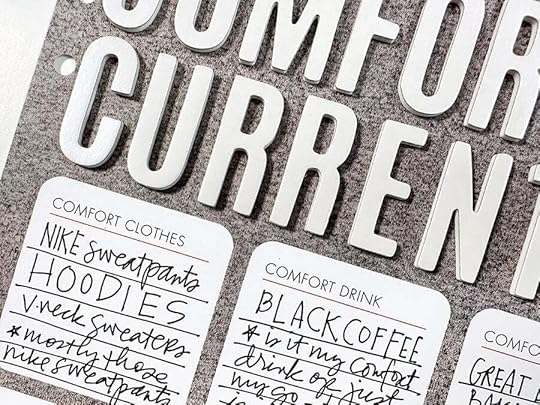 COMFOR
CURRENT
COMFORT CLOTHES
NIKE sweatpants
HOODIES
V-neck sweaters
*mostly those
nike sweatpants
COMFORT DRINK
BLACK COFFEE
* is it my comfort
drink or just
my go-
COMFO
GREAT